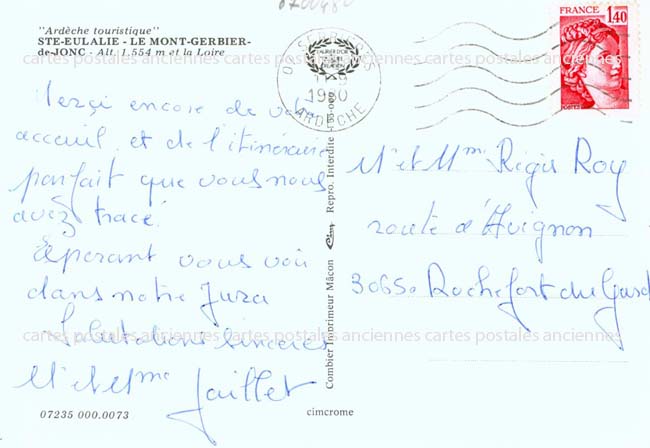 "Ardèche touristique"
STE-EULALIE - LE MONT-GERBIER-
de-JONC - Alt. 1.554 m et la Loire
cartes postales anciennes cartes postales anciennes cartes postales anciennes
Merçi encore de votre
acceuil et de l'itinéraire
parfait que vous nous
avez tracé.
Espérant vous voir
dans notre Jura
Salutations sincères
M et Mme Jaillet
07235 000.0073
Combier Imprimeur Mâcon Cim Repro. Interdite
cimcrome
1980
ARDECHE
FRANCE
1,40
POSTES
M et Mme Régis Roy
route d'Avignon
30650 Rochefort du Gard
cartes postales anciennes cartes postales anciennes cartes postales anciennes